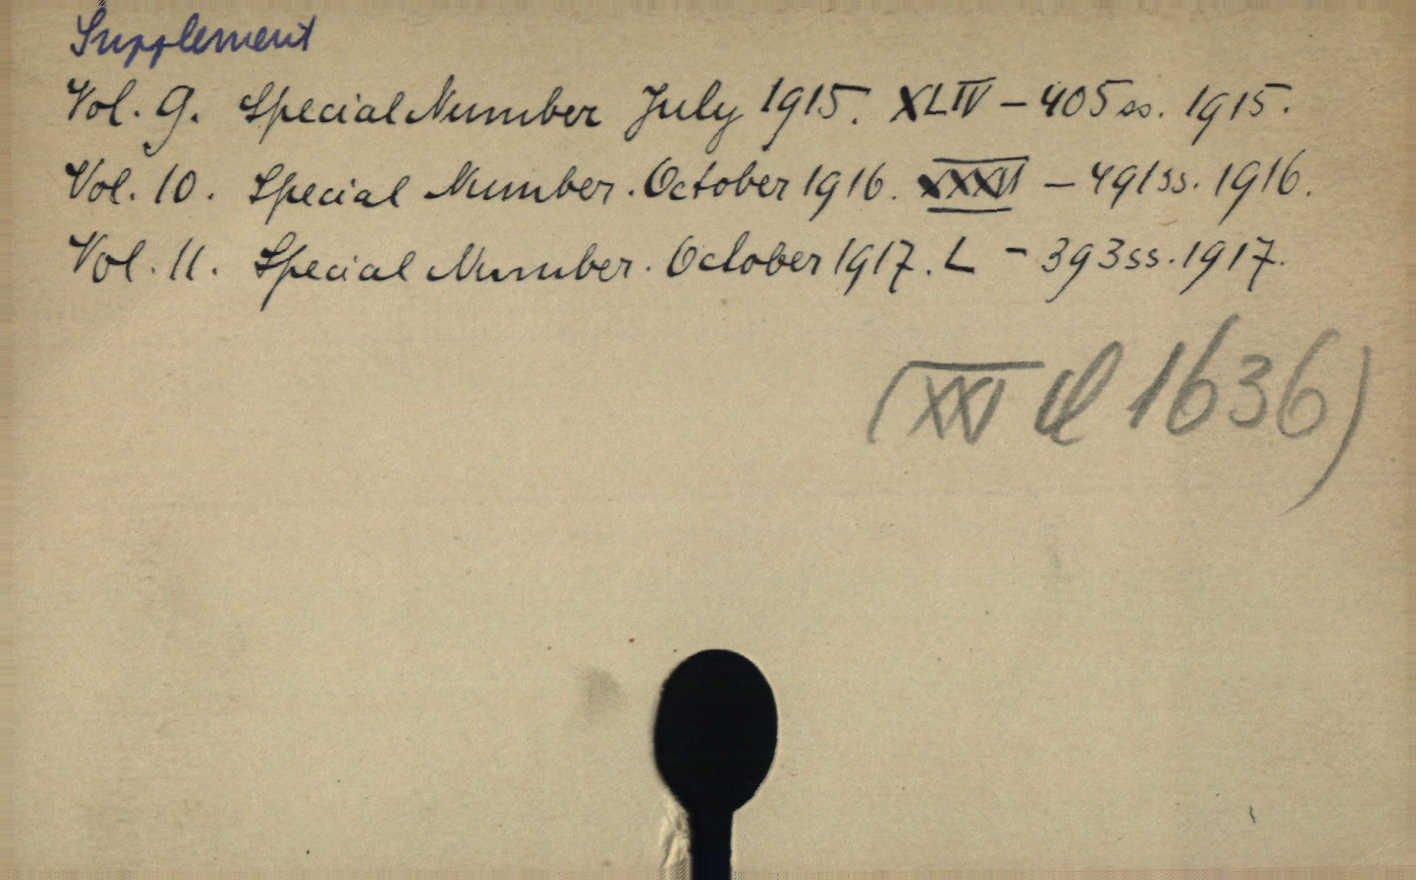 Supplement
Vol. 9. Special Number July 1915. XLIV – 405 ss. 1915.
Vol. 10. Special Number. October 1916. XXXVI – 491 ss. 1916.
Vol. 11. Special Number. October 1917. L – 393 ss. 1917.
(XXI d 1636)